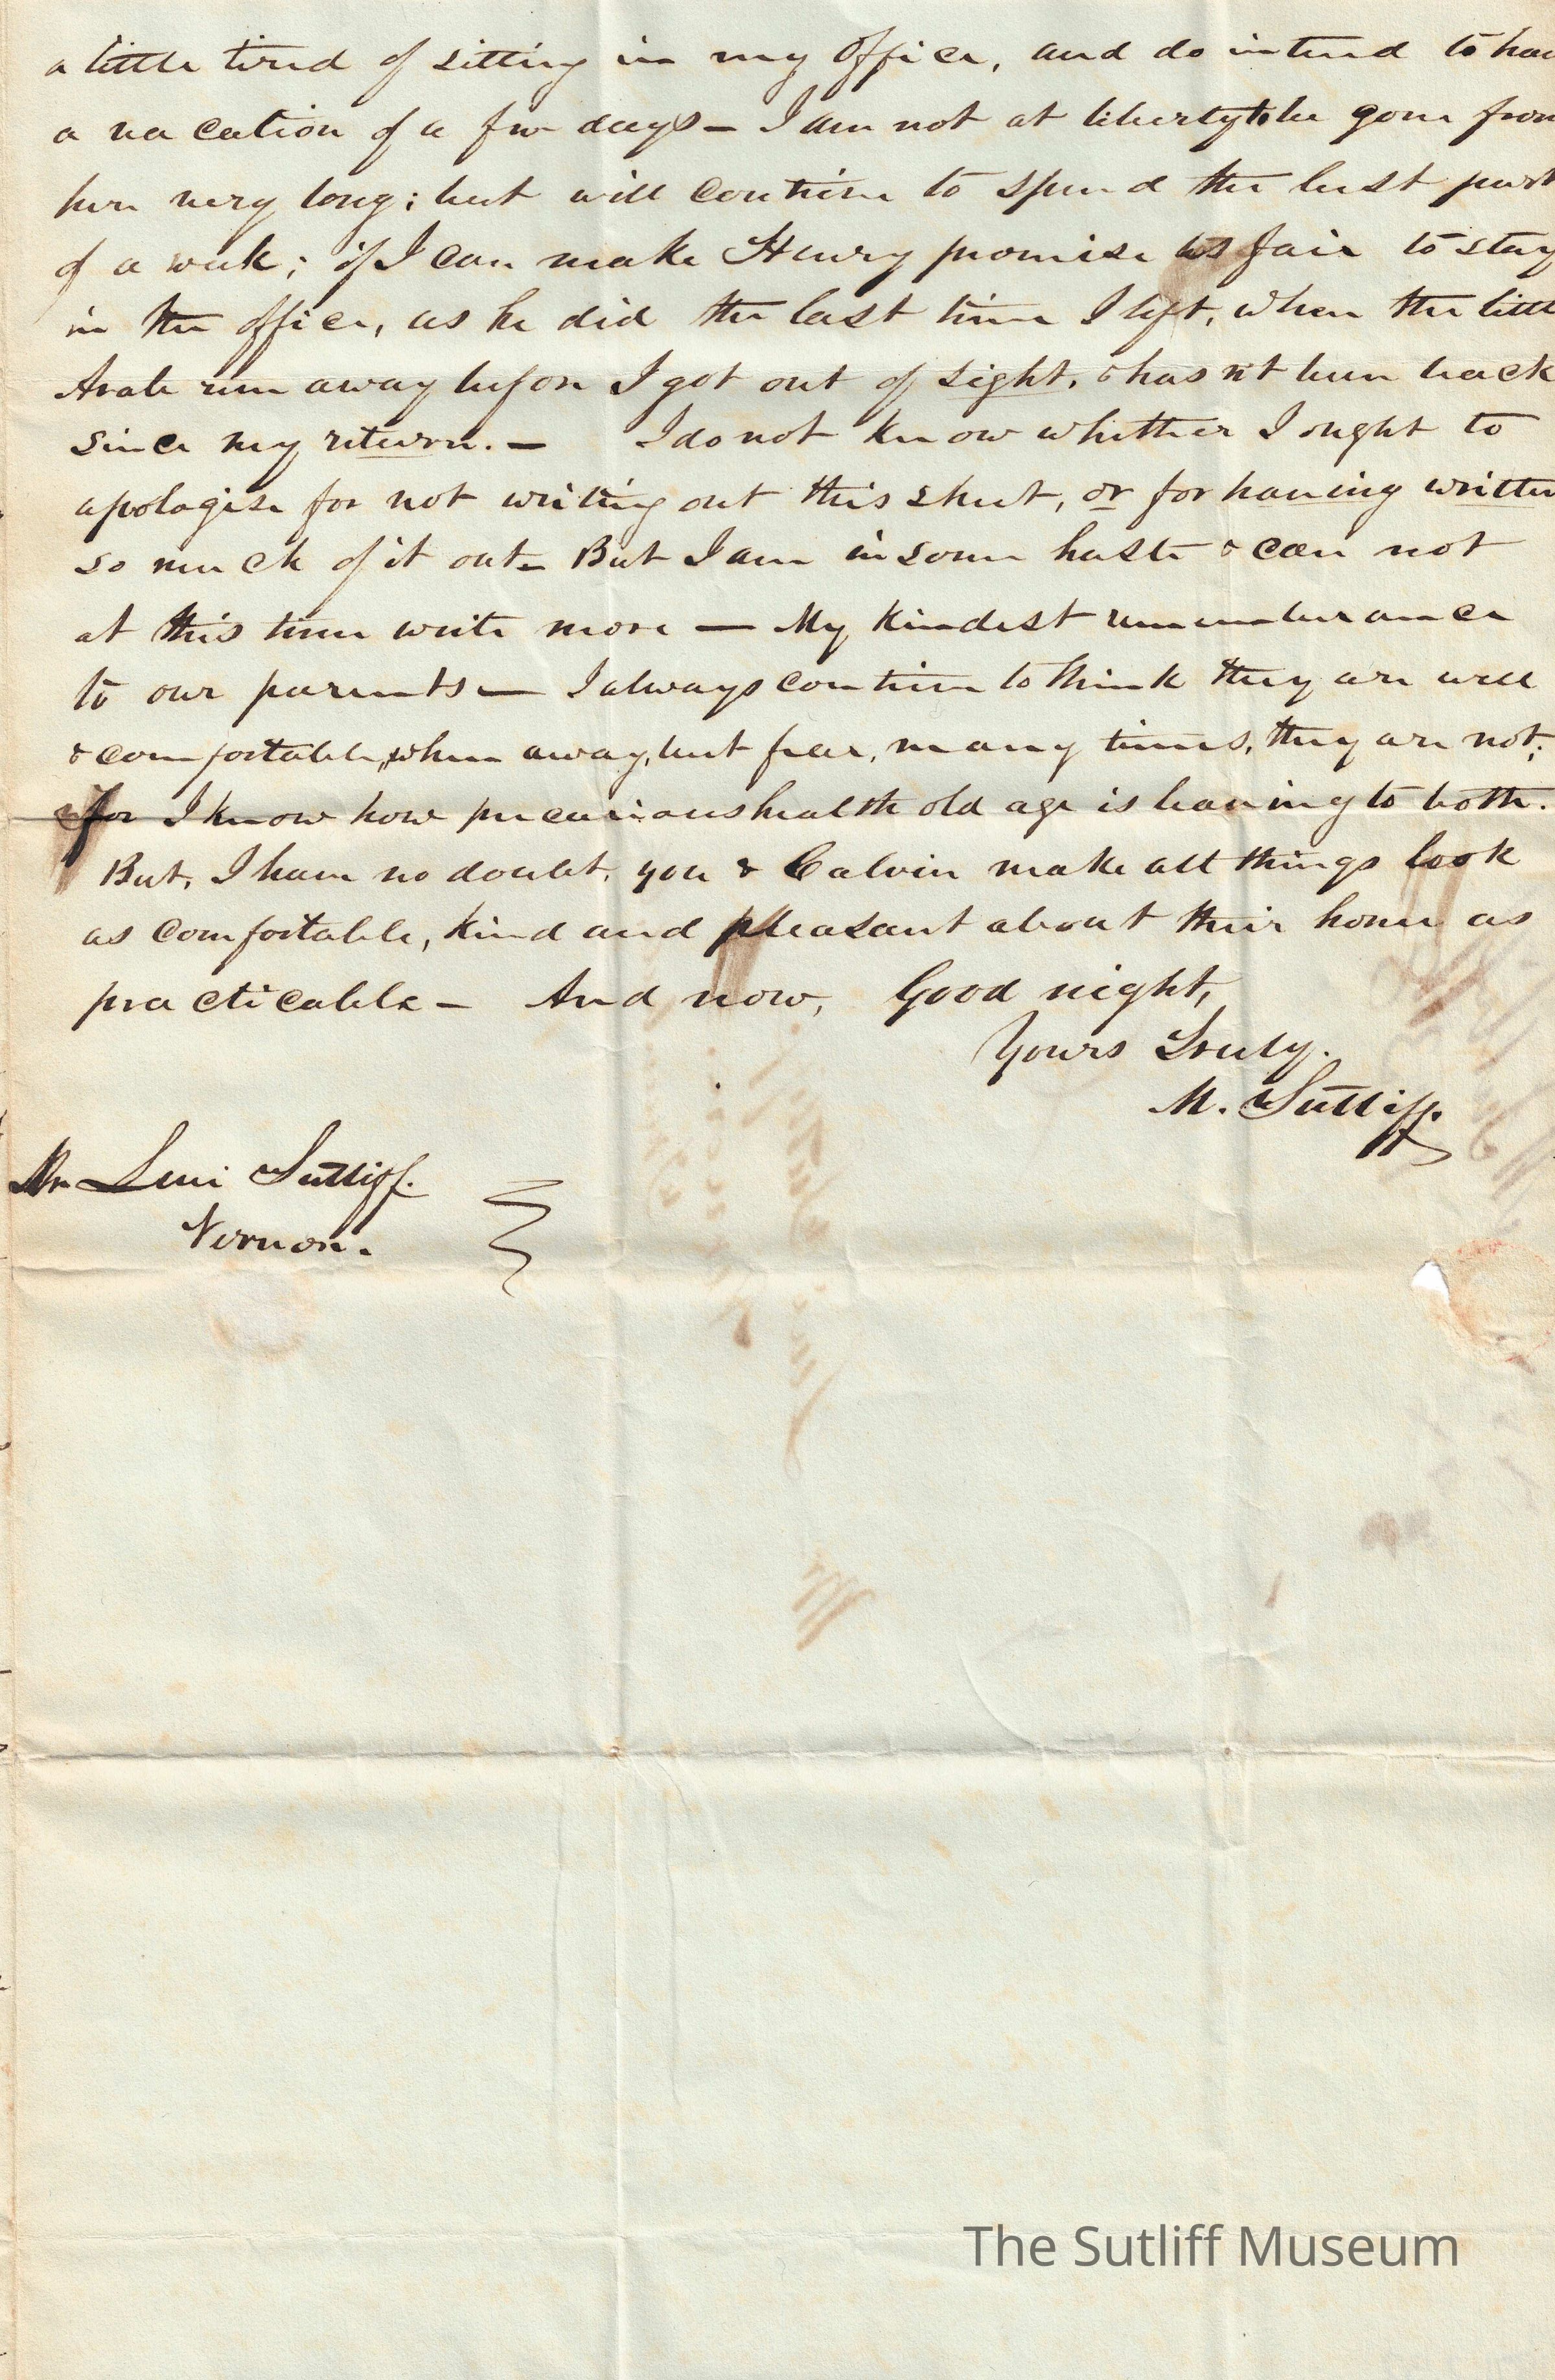 a little tired of sitting in my office, and do intend to hav
a vacation of a few days — I am not at liberty to be gone from
here very long; but will contrive to spend the best part
of a week; if I can make Henry promise as fair to stay
in the office, as he did the last time I left, when the little
Arab run away before I got out of sight, & hasn't been back
since my return. — I do not know whether I ought to
apologise for not writing out this sheet, or for having written
so much of it out — But I am in some haste & can not
at this time write more — My kindest remembrance
to our parents — I always contrive to think they are well
& comfortable, when away, but fear, many times, they are not;
for I know how precarious health old age is leaving to both.
But, I have no doubt, you & Calvin make all things look
as comfortable, kind and pleasant about their home as
practicable — And now, Good night,
Yours Truly.
M. Sutliff.
Mr Levi Sutliff.
Vernon.
The Sutliff Museum